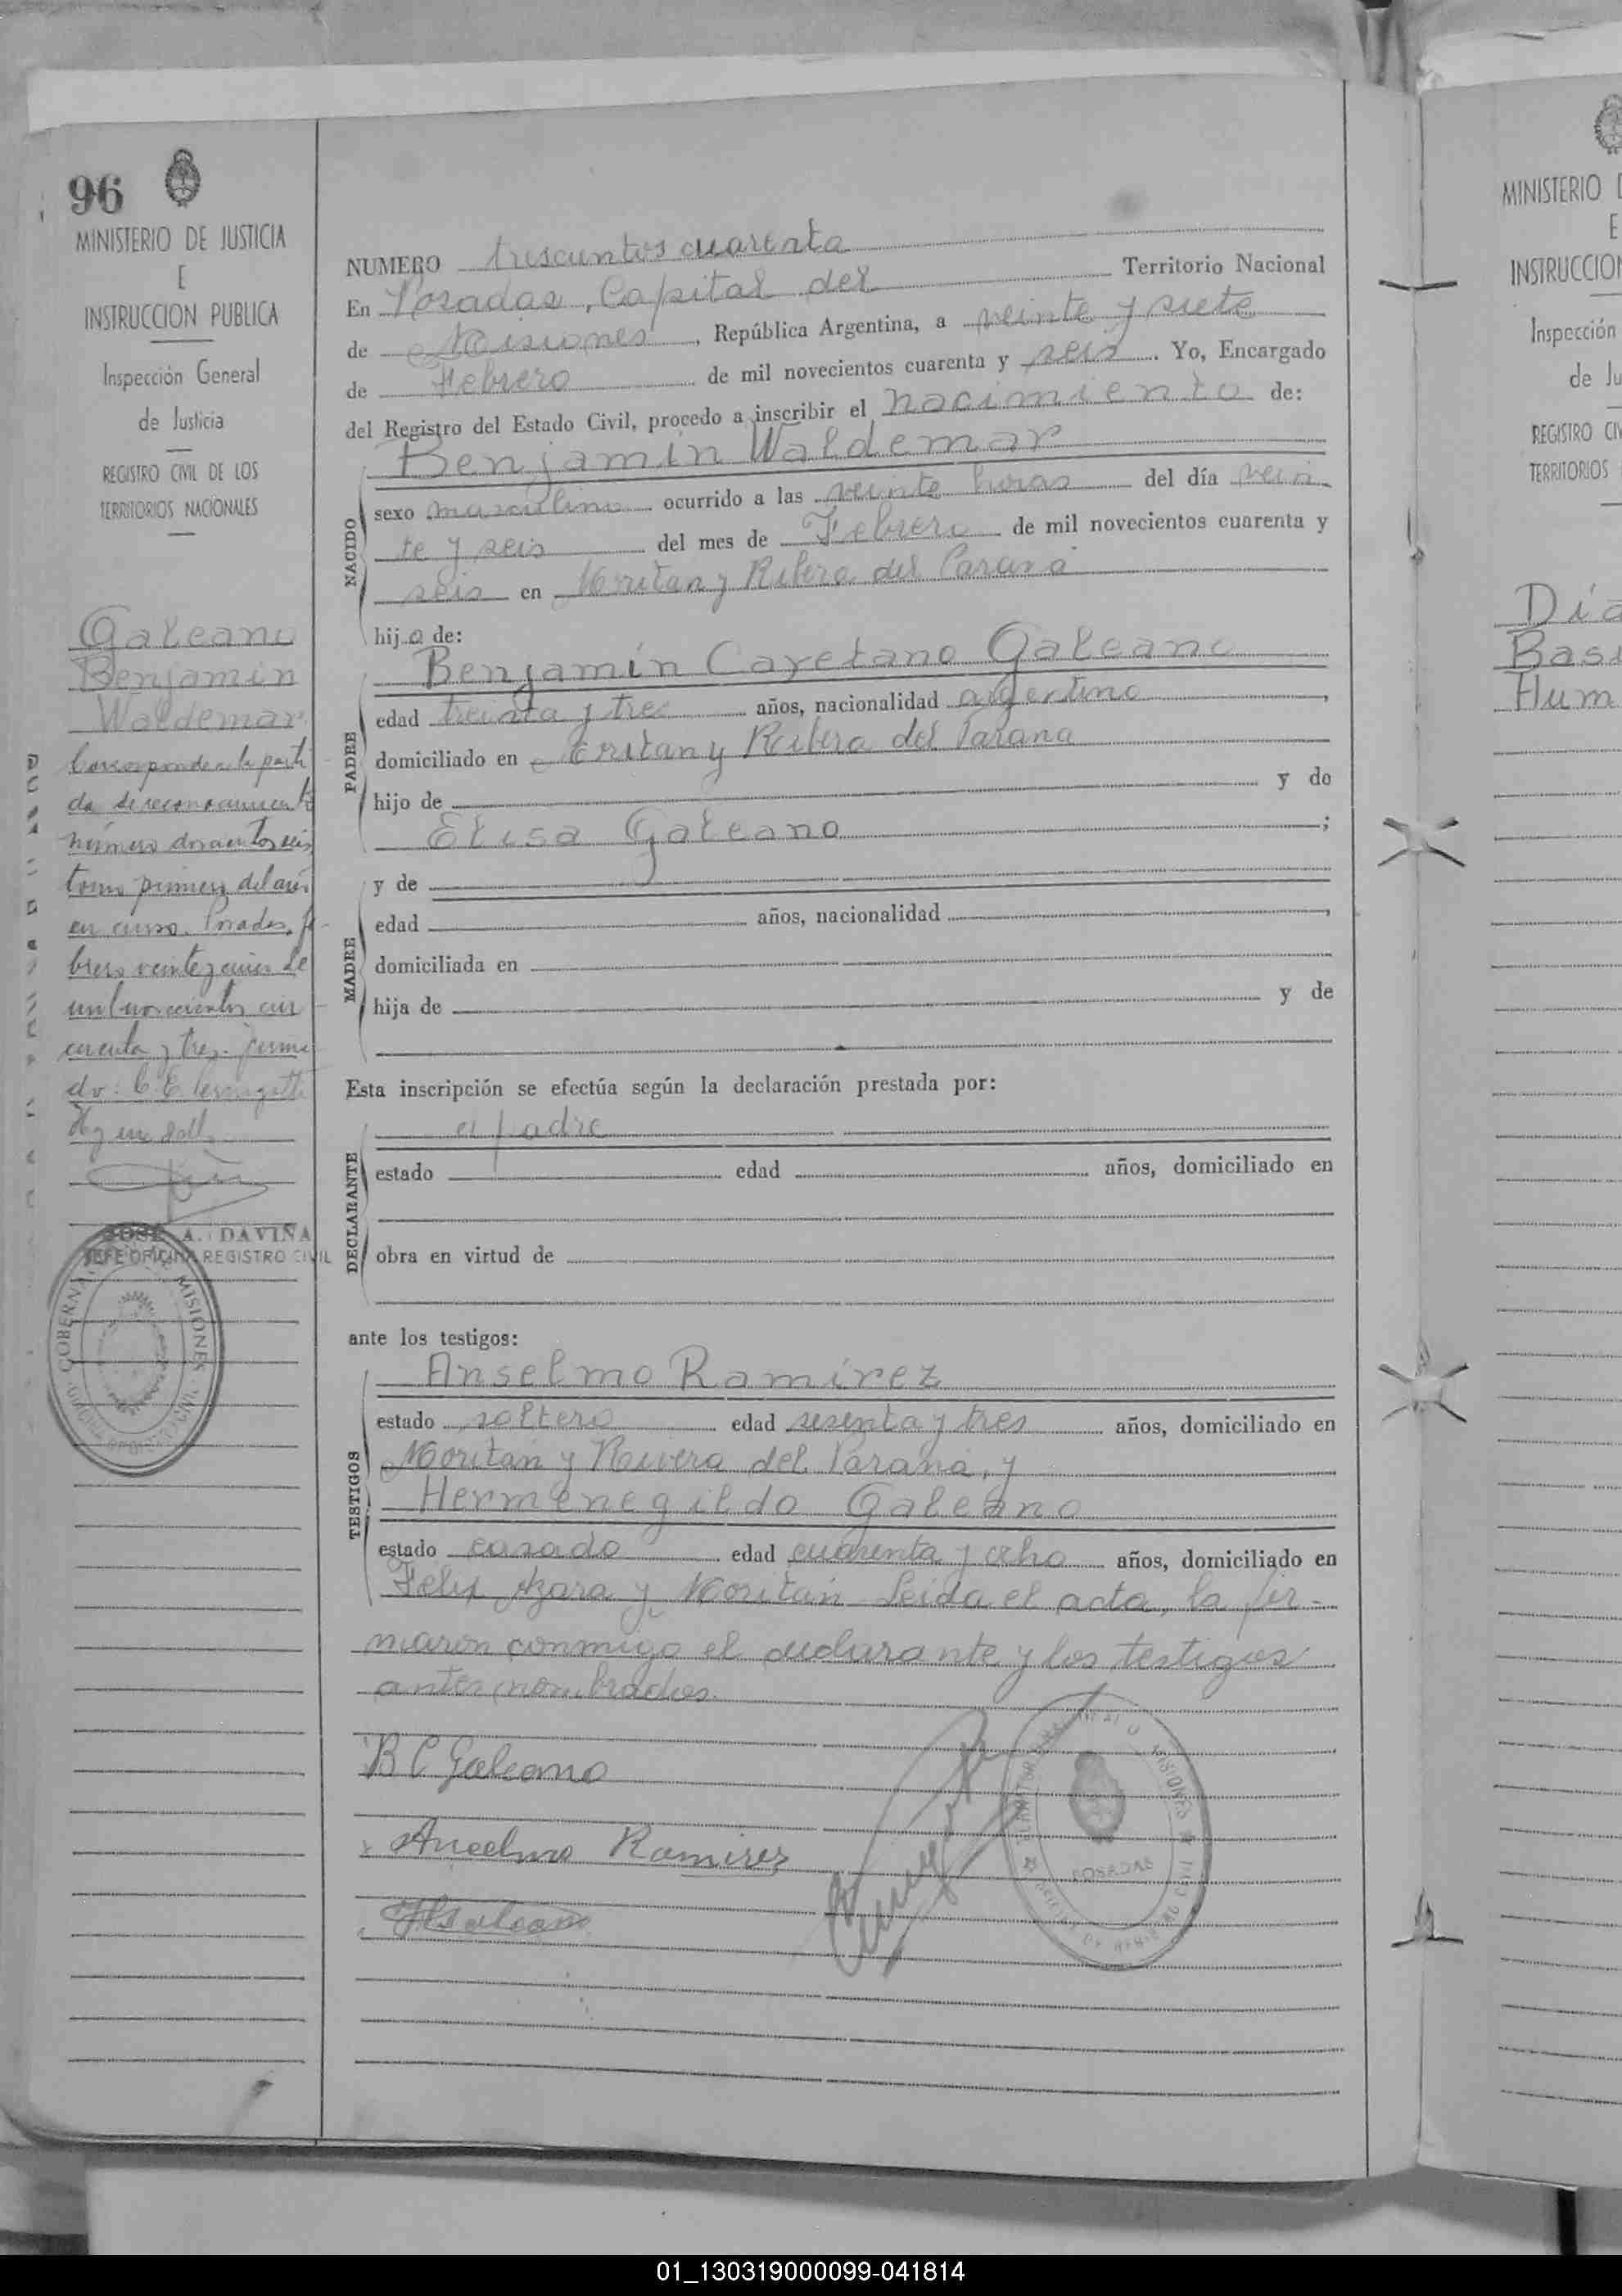 96
MINISTERIO DE JUSTICIA
E
INSTRUCCION PUBLICA
Inspección General
de Justicia
REGISTRO CIVIL DE LOS
TERRITORIOS NACIONALES
Galeano
Benjamin
Waldemar
Corresponde a la parti
da de reconocimiento
número doscientos seis
tomo primero del año
en curso. Posadas, fe
brero veinte y seis de
mil novecientos cin
cuenta y tres. firma
do: C. E.
Hay un sello
JOSÉ A. DAVIÑA
JEFE OFICINA REGISTRO CIVIL
MISIONES
NUMERO trescientos cuarenta
En Posadas, Capital del Territorio Nacional
de Misiones, República Argentina, a veinte y siete
de Febrero de mil novecientos cuarenta y seis. Yo, Encargado
del Registro del Estado Civil, procedo a inscribir el nacimiento de:
Benjamin Waldemar
NACIDO
sexo masculino ocurrido a las veinte horas del día vein
te y seis del mes de Febrero de mil novecientos cuarenta y
seis en Moritan y Ribera del Parana
hijo de:
Benjamín Cayetano Galeano
PADRE
edad treinta y tres años, nacionalidad argentino,
domiciliado en Moritan y Ribera del Parana
hijo de y de
Elisa Galeano;
y de
MADRE
edad años, nacionalidad,
domiciliada en
hija de y de
Esta inscripción se efectúa según la declaración prestada por:
el padre
DECLARANTE
estado edad años, domiciliado en
obra en virtud de
ante los testigos:
Anselmo Ramírez
TESTIGOS
estado soltero edad sesenta y tres años, domiciliado en
Moritan y Rivera del Parana, y
Hermenegildo Galeano
estado casado edad cuarenta y ocho años, domiciliado en
Felix Azara y Moritan Leida el acta, la fir-
maron conmigo el declarante y los testigos
antes nombrados.
B C Galeano
Anselmo Ramirez
HGaleano
POSADAS
MINISTERIO D
E
INSTRUCCION
Inspección
de Ju
REGISTRO CIV
TERRITORIOS
Día
Basi
Hum
01_130319000099-041814